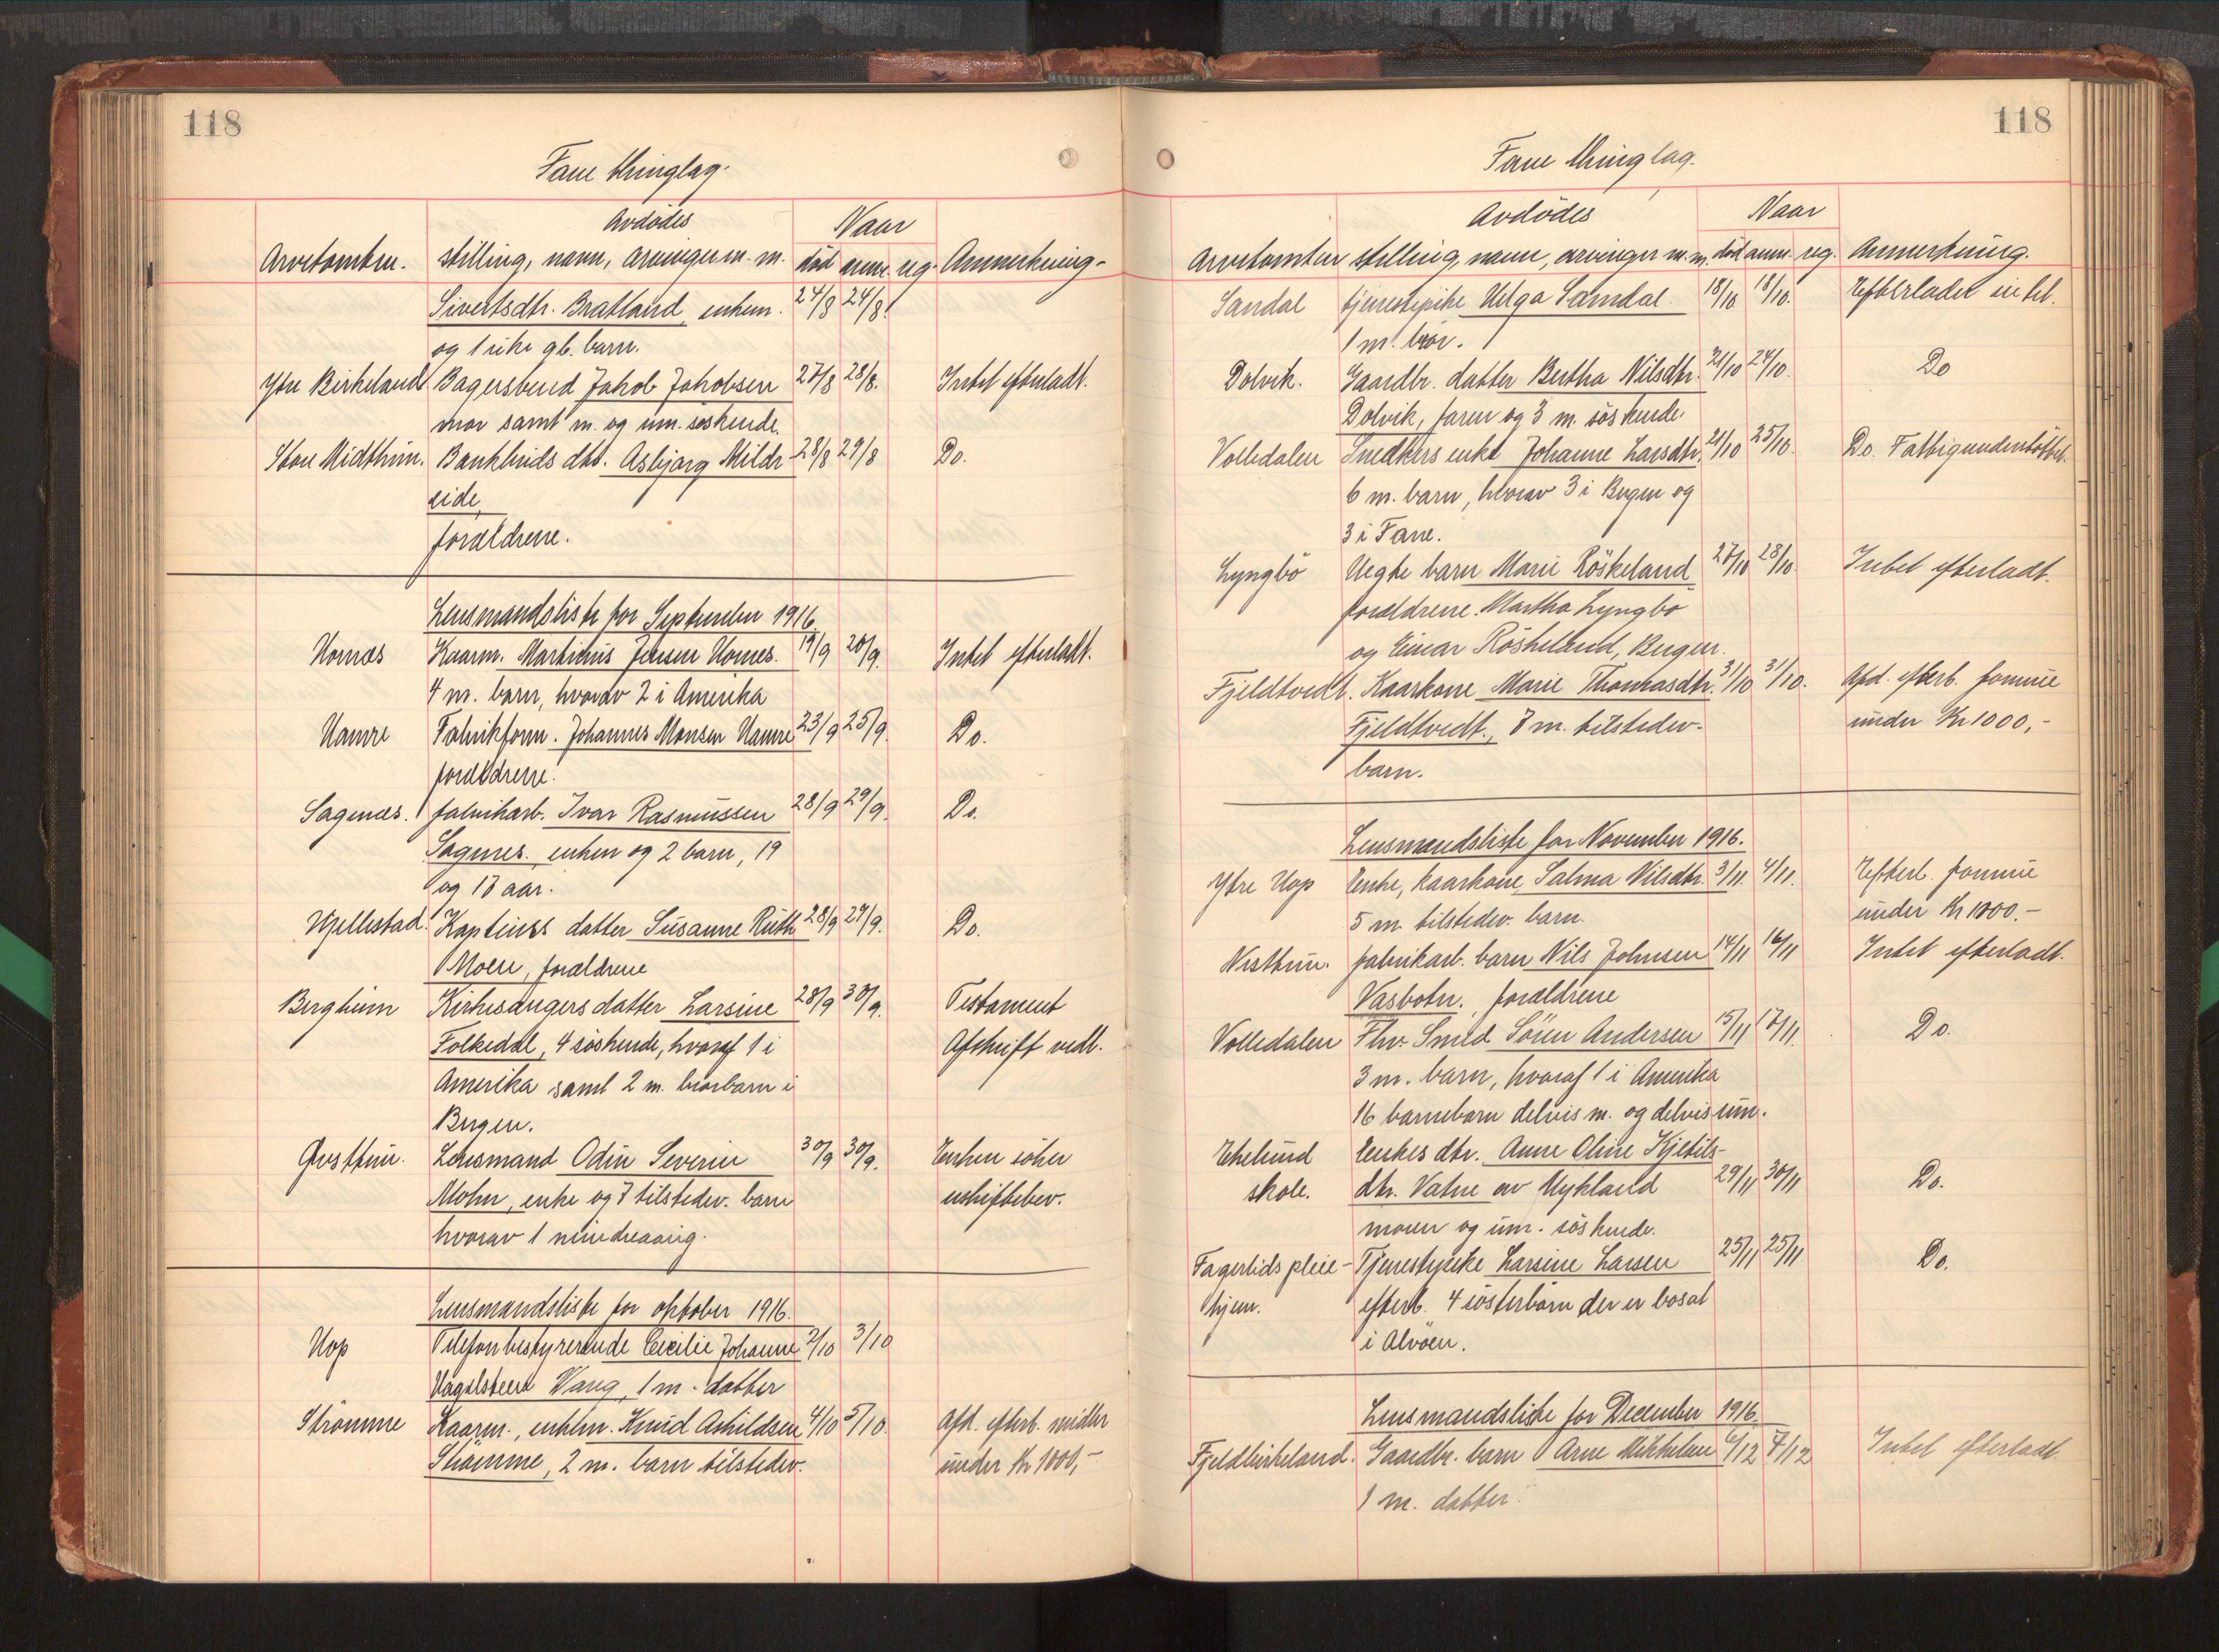 118
Fane thinglag.
Avdødes
Naar
Arvetomten. stilling, navn, arvinger m. m. død anm. reg. Anmerkning.
Sivertsdtr. Bratland, enkem. 24/8 24/8.
og 1 ikke gb. barn.
Ytre Birkeland Bagersvend Jakob Jakobsen 27/8 28/8. Intet efterladt.
mor samt m. og um. søskende.
Store Midthun. Bankbuds dtr. Asbjørg Mildr 28/8 29/8 Do.
eide,
forældrene.
Lensmandsliste for September 1916.
Hornæs Kaarm. Martinius Jensen Hornes. 19/9 20/9. Intet efterladt.
4 m. barn, hvorav 2 i Amerika
Hamre Fabrikform. Johannes Monsen Hamre 23/9 25/9. Do.
forældrene.
Sagenæs. fabrikarb. Ivar Rasmussen 28/9 29/9. Do.
Sagnes, enken og 2 barn, 19
og 13 aar.
Hjellestad. Kapteinss datter Susanne Ruth 28/9 29/9. Do.
Moen, forældrene
Bergheim Kirkesangers datter Larsine 28/9 30/9. Testament
Folkedal, 4 søskende, hvoraf 1 i Afskrift vedl.
Amerika samt 2 m. brorbarn i
Bergen.
Øvsttun. Lensmand Odin Severin 30/9 30/9. Enken søker
Mohn, enke og 7 tilstedev. barn uskiftebev.
hvorav 1 mindreaarig.
Lensmandsliste for oktober 1916.
Hop Telefonbestyrerinde Cecilie Johanne 2/10 3/10
Hagelsteen Wang, 1 m. datter
Strømme Kaarm., enkem. Knud Askildsen 4/10 5/10. Afd. efterl. midler
Strømme, 2 m. barn tilstedev. under Kr 1000,-
118
Fane thinglag.
Avdødes
Naar
Arvetomten stilling, navn, arvinger m. m. død anm. reg. Anmerkning.
Sandal tjenestepike Helga Samdal 18/10 18/10. Efterlader intet.
1 m. bror.
Dolvik. Gaardbr. datter Bertha Nilsdtr. 21/10 24/10. Do
Dolvik, faren og 3 m. søskende.
Volledalen Snedkers enke Johanne Larsdtr. 21/10 25/10. Do. Fattigunderstøttet.
6 m. barn, hvorav 3 i Bergen og
3 i Fane.
Lyngbø Uegte barn Marie Röskeland 27/10 28/10. Intet efterladt.
forældrene Martha Lyngbö
og Einar Röskeland, Bergen.
Fjeldtvedt. Kaarkone Marie Thomasdtr. 31/10 31/10. Afd. efterl. formue
Fjeldtvedt., 7 m. tilstedev. under Kr 1000,-
barn.
Lensmandsliste for November 1916.
Ytre Hop Enke, kaarkone Salma Nilsdtr. 3/11. 4/11. Efterl. formue
5 m. tilstedev. barn. under Kr 1000.-
Nesttun. fabrikarb. barn Nils Johnsen 14/11 16/11 Intet efterladt.
Vasbotn, forældrene
Volledalen Fhv. Smed Sören Andersen 15/11 17/11. Do.
3 m. barn, hvoraf 1 i Amerika
16 barnebarn delvis m. og delvis um.
Ekelund Enkes dtr. Anne Oline Kjetils-
skole. dtr. Vatne av Mykland 29/11 30/11 Do.
moren og um. söskende.
Fagerlids pleie- Tjenestepike Larsine Larsen 25/11 25/11 Do.
hjem. efterl. 4 sösterbörn der er bosat
i Alvöen.
Lensmandsliste for December 1916.
Fjeldbirkeland. Gaardbr. barn Arne Mikkelsen 6/12 7/12 Intet efterladt
1 m. datter.